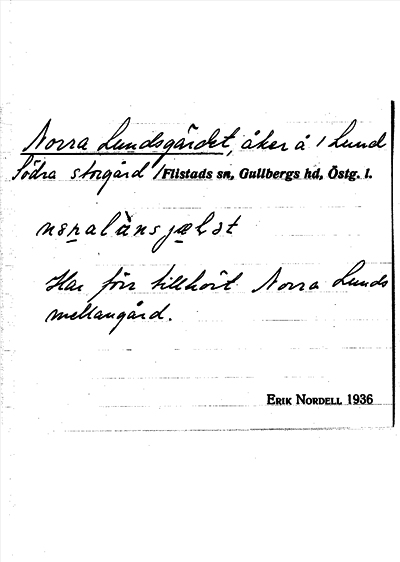 Norra Lundsgärdet, åker å / Lund
Södra storgård / Flistads sn, Gullbergs hd, Östg. l.
Har förr tillhört Norra Lunds
mellangård.
ERIK NORDELL 1936